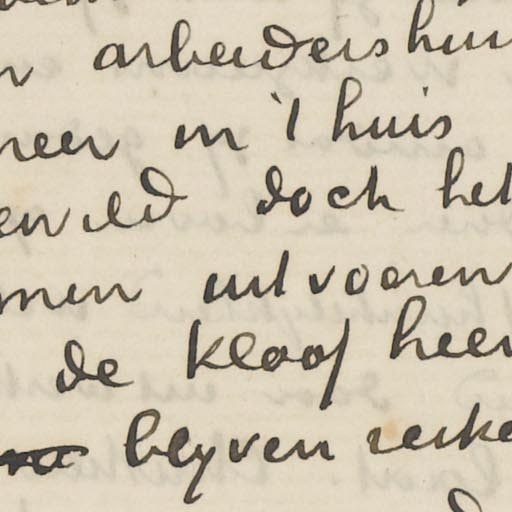 arbeiders huis
meer in 't huis
doch het
men uitvoeren
de kloof heen
blyven